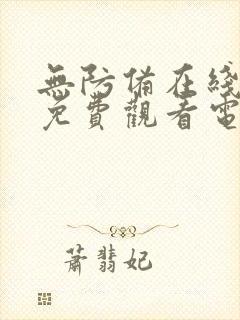 無防備在綫
免費觀看電
蕭翡妃